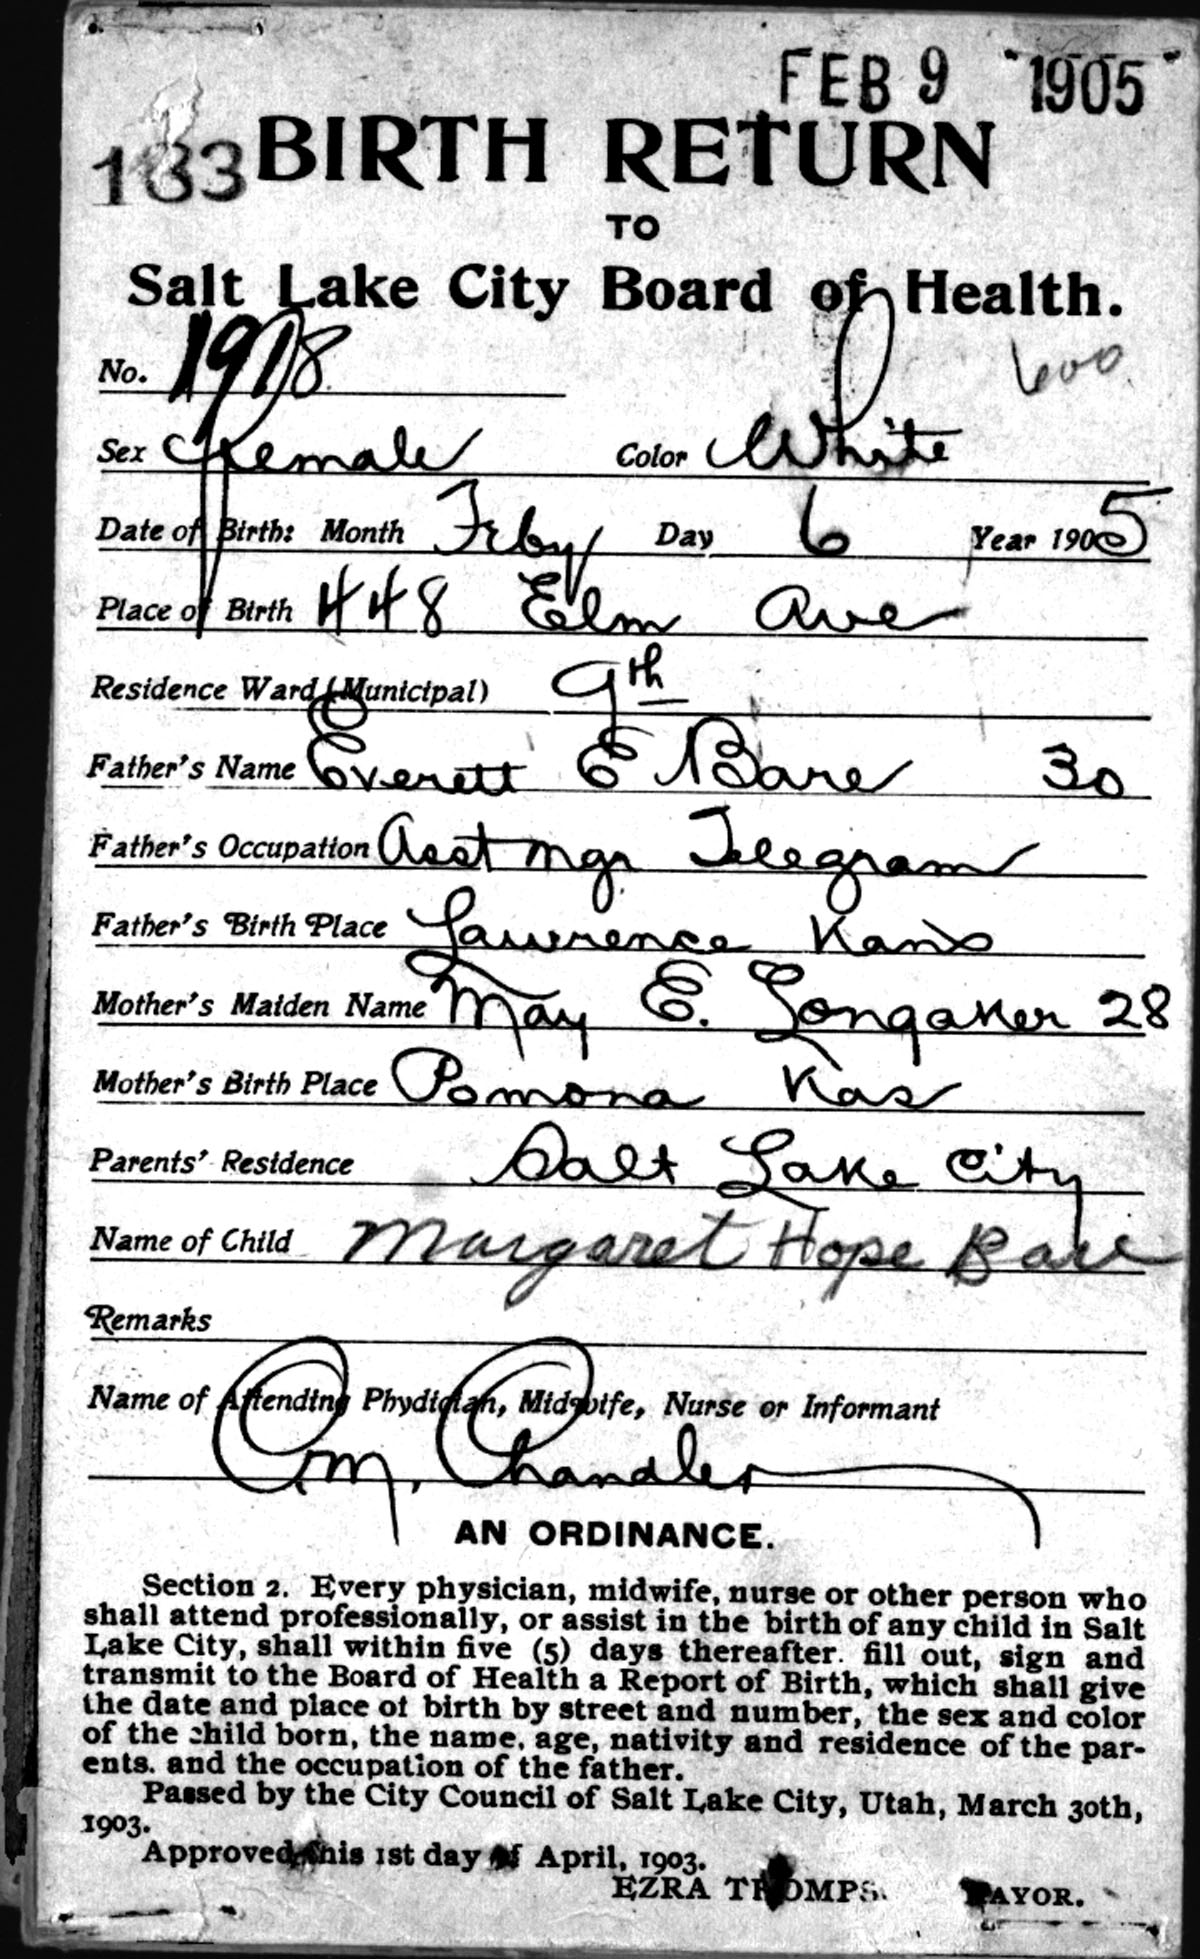 FEB 9 1905
183 BIRTH RETURN
TO
Salt Lake City Board of Health.
No. 1918 600
Sex Female Color White
Date of Birth: Month Feby Day 6 Year 1905
Place of Birth 448 Elm Ave
Residence Ward (Municipal) 9th
Father's Name Everett E Bare 30
Father's Occupation Asst Mgr Telegram
Father's Birth Place Lawrence Kans
Mother's Maiden Name May E. Longaker 28
Mother's Birth Place Pomona Kas
Parents' Residence Salt Lake City
Name of Child Margaret Hope Bare
Remarks
Name of Attending Phydician, Midwife, Nurse or Informant
Chandler
AN ORDINANCE.
Section 2. Every physician, midwife, nurse or other person who
shall attend professionally, or assist in the birth of any child in Salt
Lake City, shall within five (5) days thereafter. fill out, sign and
transmit to the Board of Health a Report of Birth, which shall give
the date and place of birth by street and number, the sex and color
of the child born, the name, age, nativity and residence of the par-
ents. and the occupation of the father.
Passed by the City Council of Salt Lake City, Utah, March 30th,
1903.
Approved this 1st day of April, 1903.
EZRA THOMPS MAYOR.